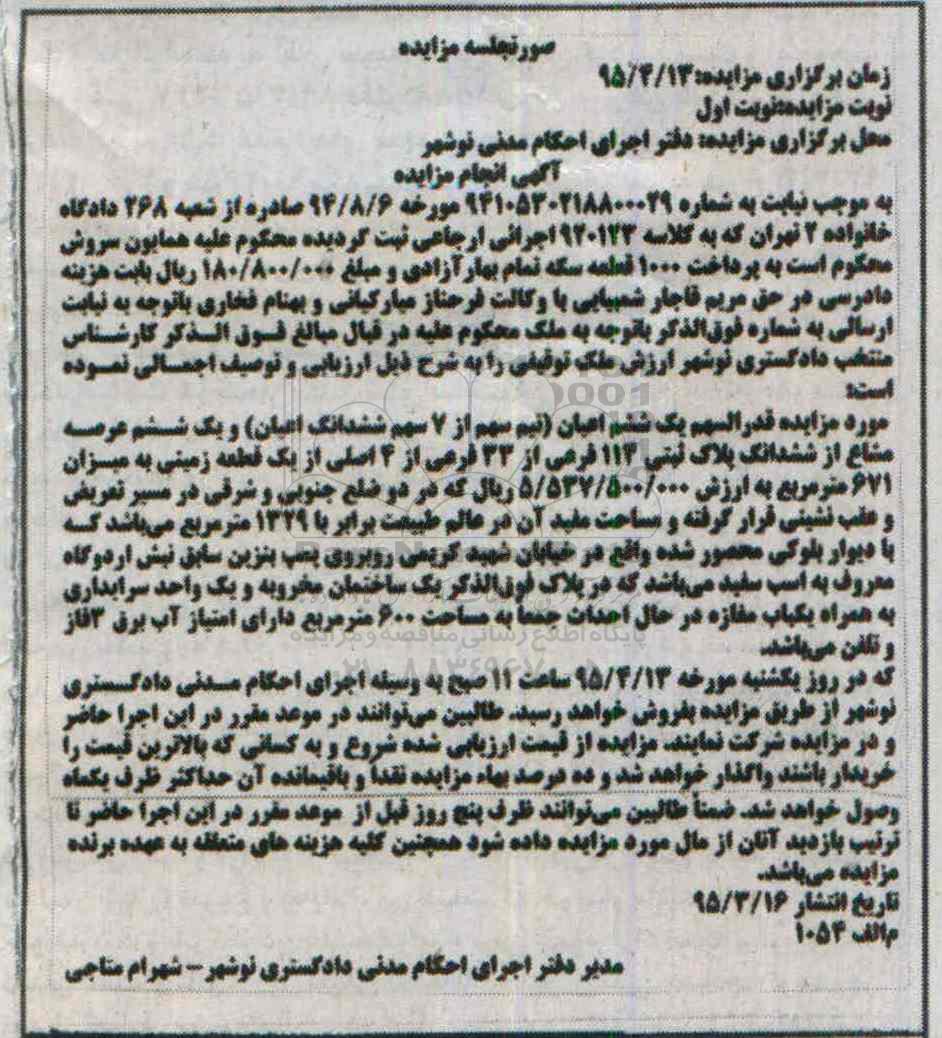 صورتجلسه مزایده
زمان برگزاری مزایده: ۹۵/۴/۱۳
نوبت مزایده:نوبت اول
محل برگزاری مزایده: دفتر اجرای احکام مدنی نوشهر
آگهی انجام مزایده
به موجب نیابت به شماره ۹۴۱۰۵۳۰۲۱۸۸۰۰۰۲۹ مورخه ۹۴/۸/۶ صادره از شعبه ۲۶۸ دادگاه
خانواده ۲ تهران که به کلاسه ۹۴۰۱۲۳ اجرائی ارجاعی ثبت گردیده محکوم علیه همایون سروش
محکوم است به پرداخت ۱۰۰۰ قطعه سکه تمام بهار آزادی و مبلغ ۱۸۰/۸۰۰/۰۰۰ ریال بابت هزینه
دادرسی در حق مریم قاجار شمبیاتی با وکالت فرحناز مبارکیانی و بهنام فخاری باتوجه به نیابت
ارسالی به شماره فوق‌الذکر باتوجه به ملک محکوم علیه در قبال مبالغ فوق الذکر کارشناس
منتخب دادگستری نوشهر ارزش ملک توقیفی را به شرح ذیل ارزیابی و توصیف اجمالی نموده
است:
مورد مزایده قدرالسهم یک ششم اعیان (نیم سهم از ۷ سهم ششدانگ اعیان) و یک ششم عرصه
مشاع از ششدانگ پلاک ثبتی ۱۱۴ فرعی از ۳۳ فرعی از ۴ اصلی از یک قطعه زمینی به میزان
۶۷۱ مترمربع به ارزش ۵/۵۳۷/۵۰۰/۰۰۰ ریال که در دو ضلع جنوبی و شرقی در مسیر تعریض
و عقب نشینی قرار گرفته و مساحت مفید آن در عالم طبیعت برابر با ۱۳۲۹ مترمربع می‌باشد که
با دیوار بلوکی محصور شده واقع در خیابان شهید کریمی روبروی پمپ بنزین سابق نبش اردوگاه
معروف به اسب سفید می‌باشد که در پلاک فوق‌الذکر یک ساختمان مخروبه و یک واحد سرایداری
به همراه یکباب مغازه در حال احداث جمعاً به مساحت ۶۰۰ مترمربع دارای امتیاز آب برق ۳فاز
و تلفن می‌باشد.
که در روز یکشنبه مورخه ۹۵/۴/۱۳ ساعت ۱۱ صبح به وسیله اجرای احکام مدنی دادگستری
نوشهر از طریق مزایده بفروش خواهد رسید. طالبین می‌توانند در موعد مقرر در این اجرا حاضر
و در مزایده شرکت نمایند. مزایده از قیمت ارزیابی شده شروع و به کسانی که بالاترین قیمت را
خریدار باشند واگذار خواهد شد و ده درصد بهاء مزایده نقداً و باقیمانده آن حداکثر ظرف یکماه
وصول خواهد شد. ضمناً طالبین می‌توانند ظرف پنج روز قبل از موعد مقرر در این اجرا حاضر تا
ترتیب بازدید آنان از مال مورد مزایده داده شود همچنین کلیه هزینه های متعلقه به عهده برنده
مزایده می‌باشد.
تاریخ انتشار ۹۵/۳/۱۶
م‌الف ۱۰۵۴
مدیر دفتر اجرای احکام مدنی دادگستری نوشهر – شهرام متاجی